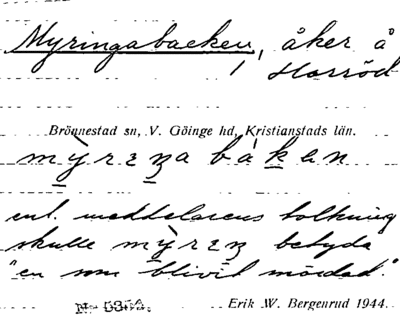 Myringabacken, åker å
Horröd
Brönnestad sn, V. Göinge hd, Kristianstads län.
mỳreŋa bákan
enl. meddelarens tolkning
skulle mỳreŋ betyda
"en som blivit mördad."
No 5352. Erik W. Bergenrud 1944.